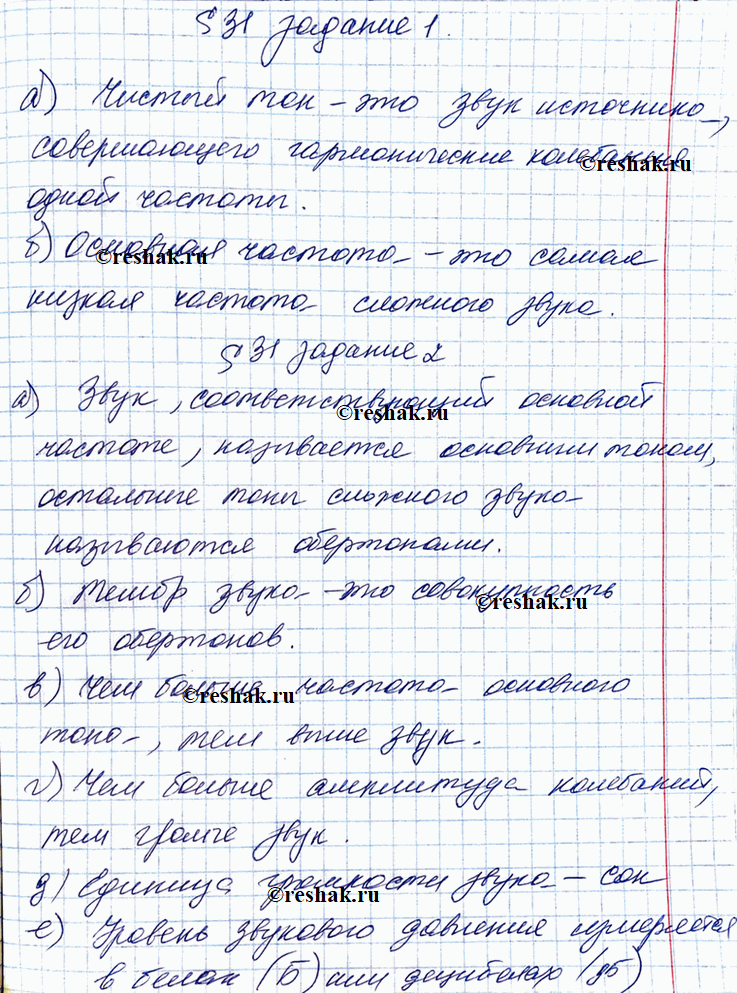 § 31 задание 1.
а) Чистый тон – это звук источника,
совершающего гармонические колебания
©reshak.ru
одной частоты.
б) Основная частота – это самая
©reshak.ru
низкая частота сложного звука.
§ 31 задание 2
а) Звук, соответствующий основной
©reshak.ru
частоте, называется основным тоном,
остальные тоны сложного звука
называются обертонами.
б) Тембр звука – это совокупность
©reshak.ru
его обертонов.
в) Чем больше частота основного
©reshak.ru
тона, тем выше звук.
г) Чем больше амплитуда колебаний,
тем громче звук.
д) Единица громкости звука – сон
©reshak.ru
е) Уровень звукового давления измеряется
в белах (Б) или децибелах (дБ)